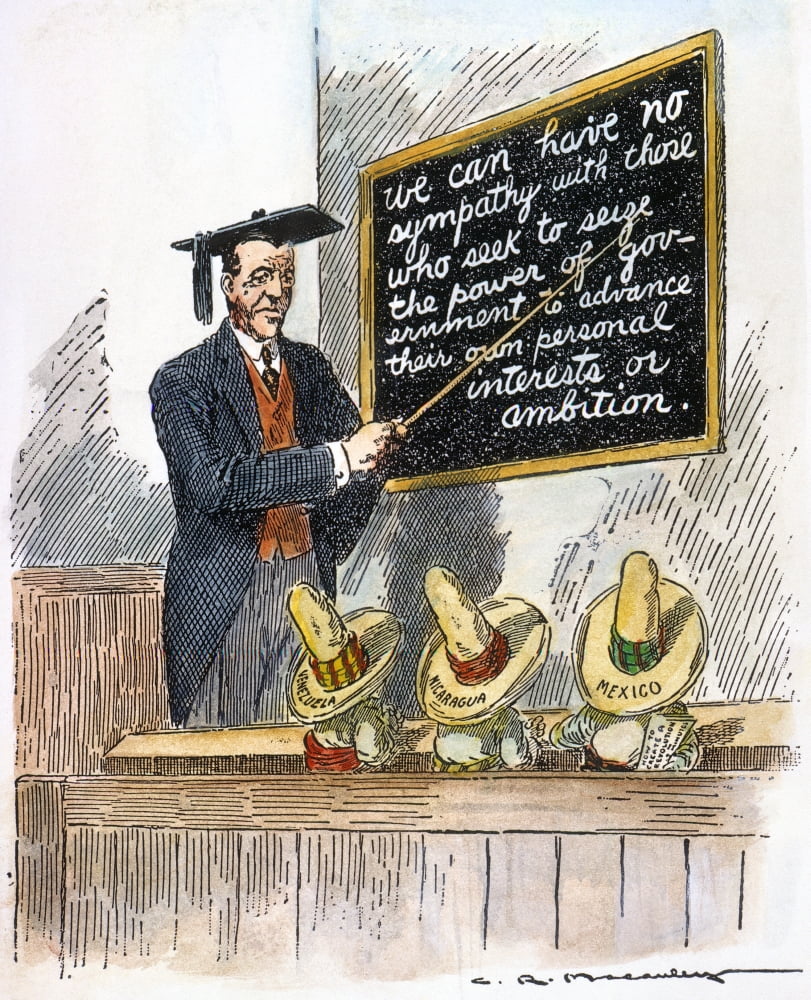 we can have no
sympathy with those
who seek to seize
the power of gov-
ernment to advance
their own personal
interests or
ambition.
VENEZUELA
NICARAGUA
MEXICO
HOW TO
CREATE A
REVOLUTION
C. R. Macauley